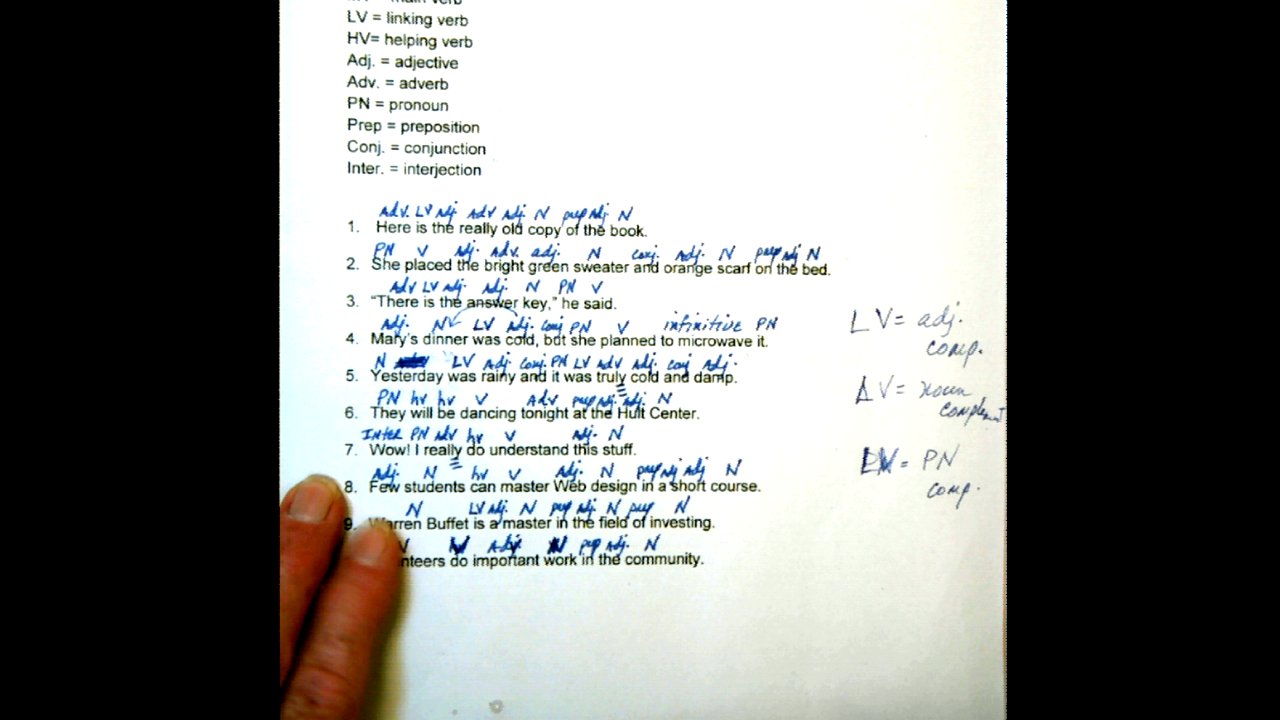 LV = linking verb
HV= helping verb
Adj. = adjective
Adv. = adverb
PN = pronoun
Prep = preposition
Conj. = conjunction
Inter. = interjection
Adv. LV Adj. Adv Adj. N prep Adj. N
1. Here is the really old copy of the book.
PN V Adj. Adv. adj. N conj. Adj. N prep Adj N
2. She placed the bright green sweater and orange scarf on the bed.
Adv LV Adj. Adj. N PN V
3. "There is the answer key," he said.
Adj. N LV Adj. conj PN V infinitive PN
4. Mary's dinner was cold, but she planned to microwave it.
N LV Adj. conj. PN LV Adv Adj. conj Adj.
5. Yesterday was rainy and it was truly cold and damp.
PN hv hv V Adv prep Adj. adj. N
6. They will be dancing tonight at the Hult Center.
Inter PN adv hv V Adj. N
7. Wow! I really do understand this stuff.
Adj. N hv V Adj. N prep Adj Adj N
8. Few students can master Web design in a short course.
N LV Adj. N prep Adj. N prep N
9. Warren Buffet is a master in the field of investing.
Adj. N prep Adj. N
nteers do important work in the community.
LV = adj. comp.
LV = noun complement
LV = PN comp.